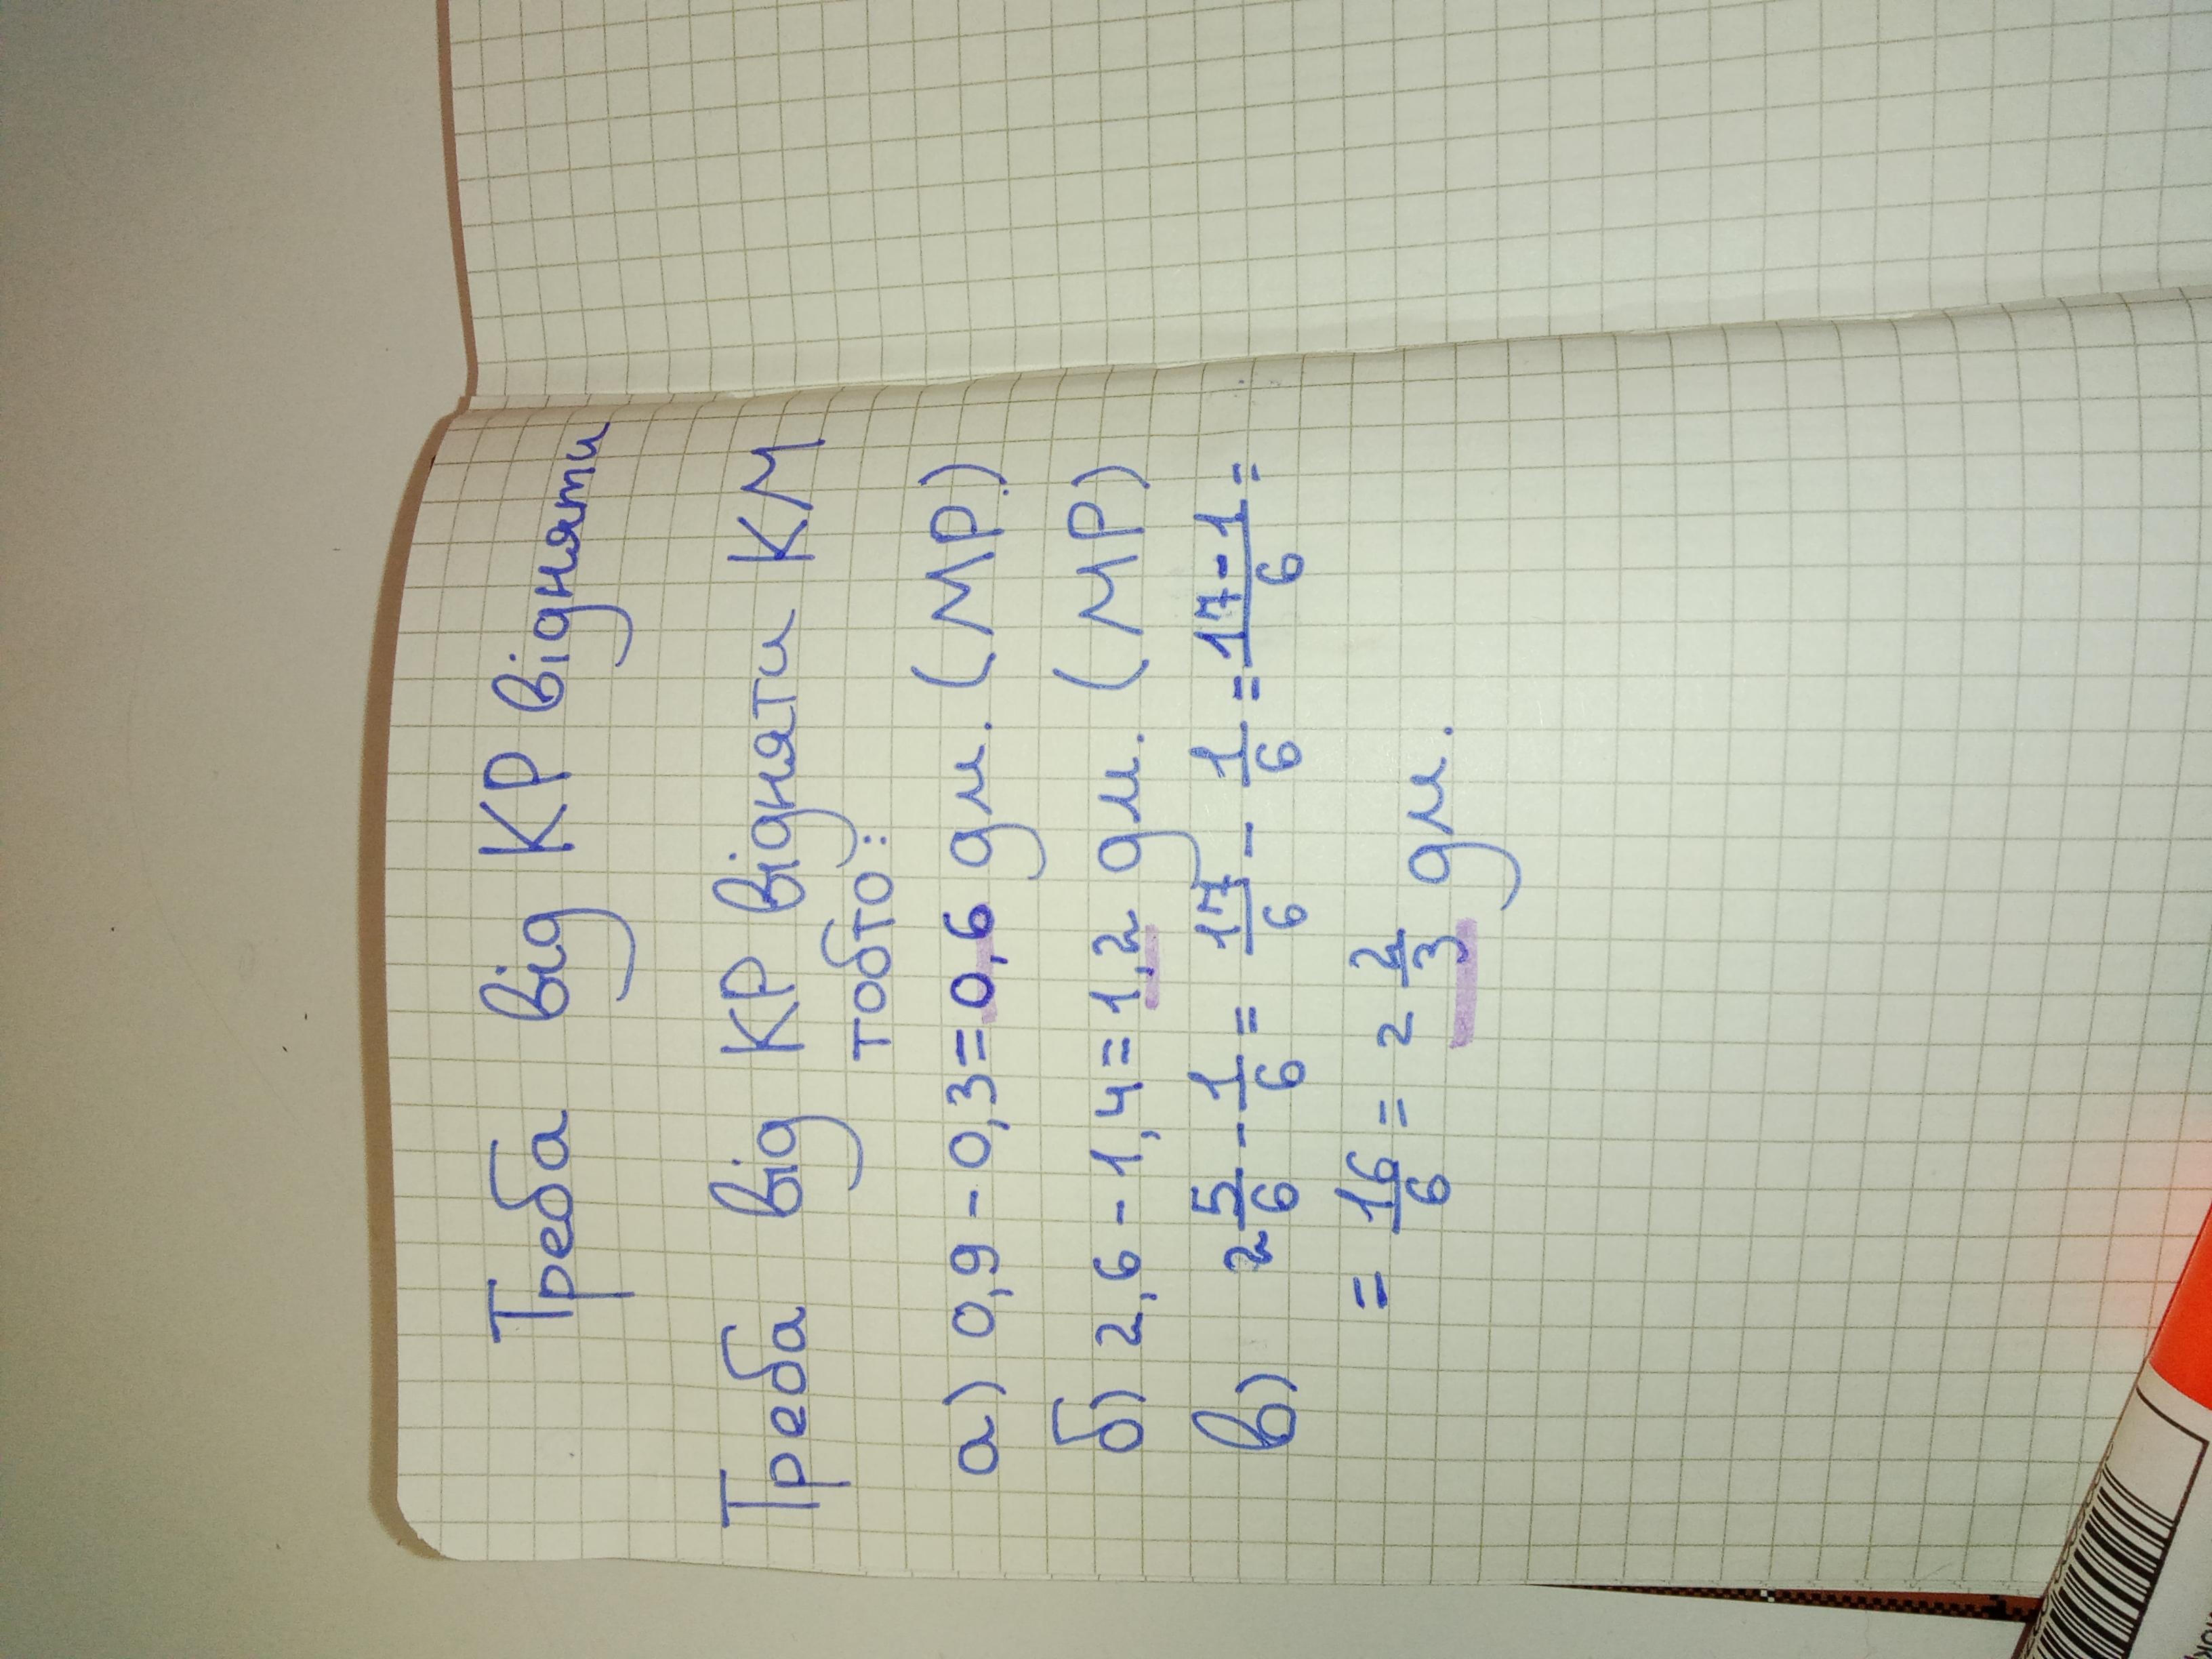 Треба від КР відняти
Треба від КР відняти КМ
тобто:
а) 0,9 - 0,3 = 0,6 дм. (МР)
б) 2,6 - 1,4 = 1,2 дм. (МР)
в) 2 5/6 - 1/6 = 17/6 - 1/6 = 17-1/6 =
= 16/6 = 2 2/3 дм.